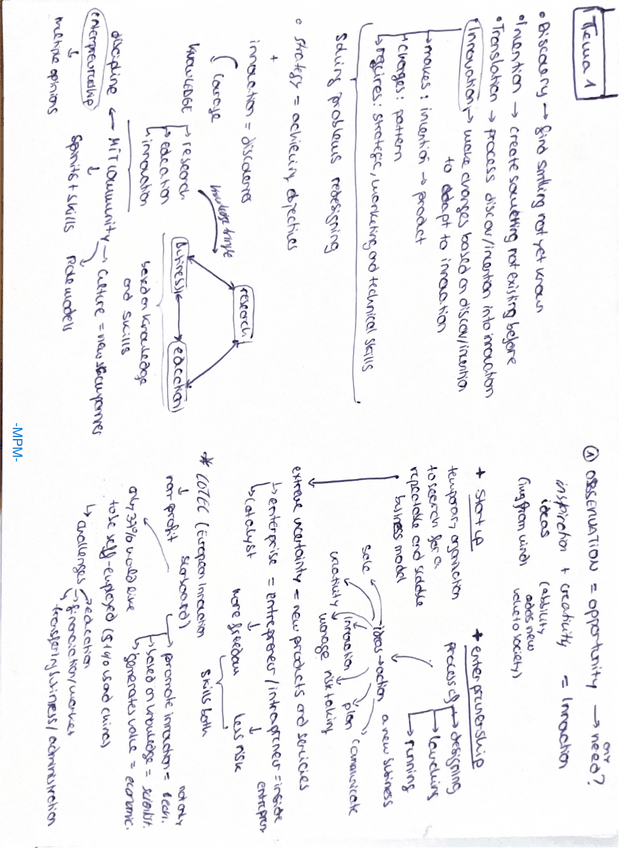 Tema 1
• Discovery → find smthing not yet known
• Invention → create something not existing before
• Translation → process discov/invention into innovation
• Innovation → make changes based on discov/invention
to adapt to innovation
→ makes: invention → product
→ changes: pattern
→ requires: strategic, marketing and technical skills
Solving problems redesigning
• strategy = achieving objectives
+
innovation = discoveries
courage
knowledge → research
→ education
→ innovation
knowledge triangle
research
business
education
based on knowledge
and skills
discipline ← MIT community → culture = new
entrepreneurship
spirits + skills
role models
multiple opinions
① OBSERVATION = opportunity → need?
inspiration + creativity = innovation
ideas
(ability
adds new
value to society)
+ start up
temporary organization
to search for a
repeatable and scalable
business model
+ entrepreneurship
process of → designing
→ launching
→ running
a new business
ideas → action
sale
creativity
innovation
plan
communicate
manage
risk taking
extreme uncertainty = new products and services
→ enterprise = entrepreneur / intrapreneur = inside
entrepren
→ catalyst
more freedom
less risk
skills both
* COTEC (European innovation
scoreboard)
non profit
→ promote innovation = not only
tech.
→ based on knowledge = scientist.
→ generates value = economic.
only 37% would like
to be self-employed (51% US and china)
→ challenges → education
→ innovation/worker
transferring business/administration
-MPM-